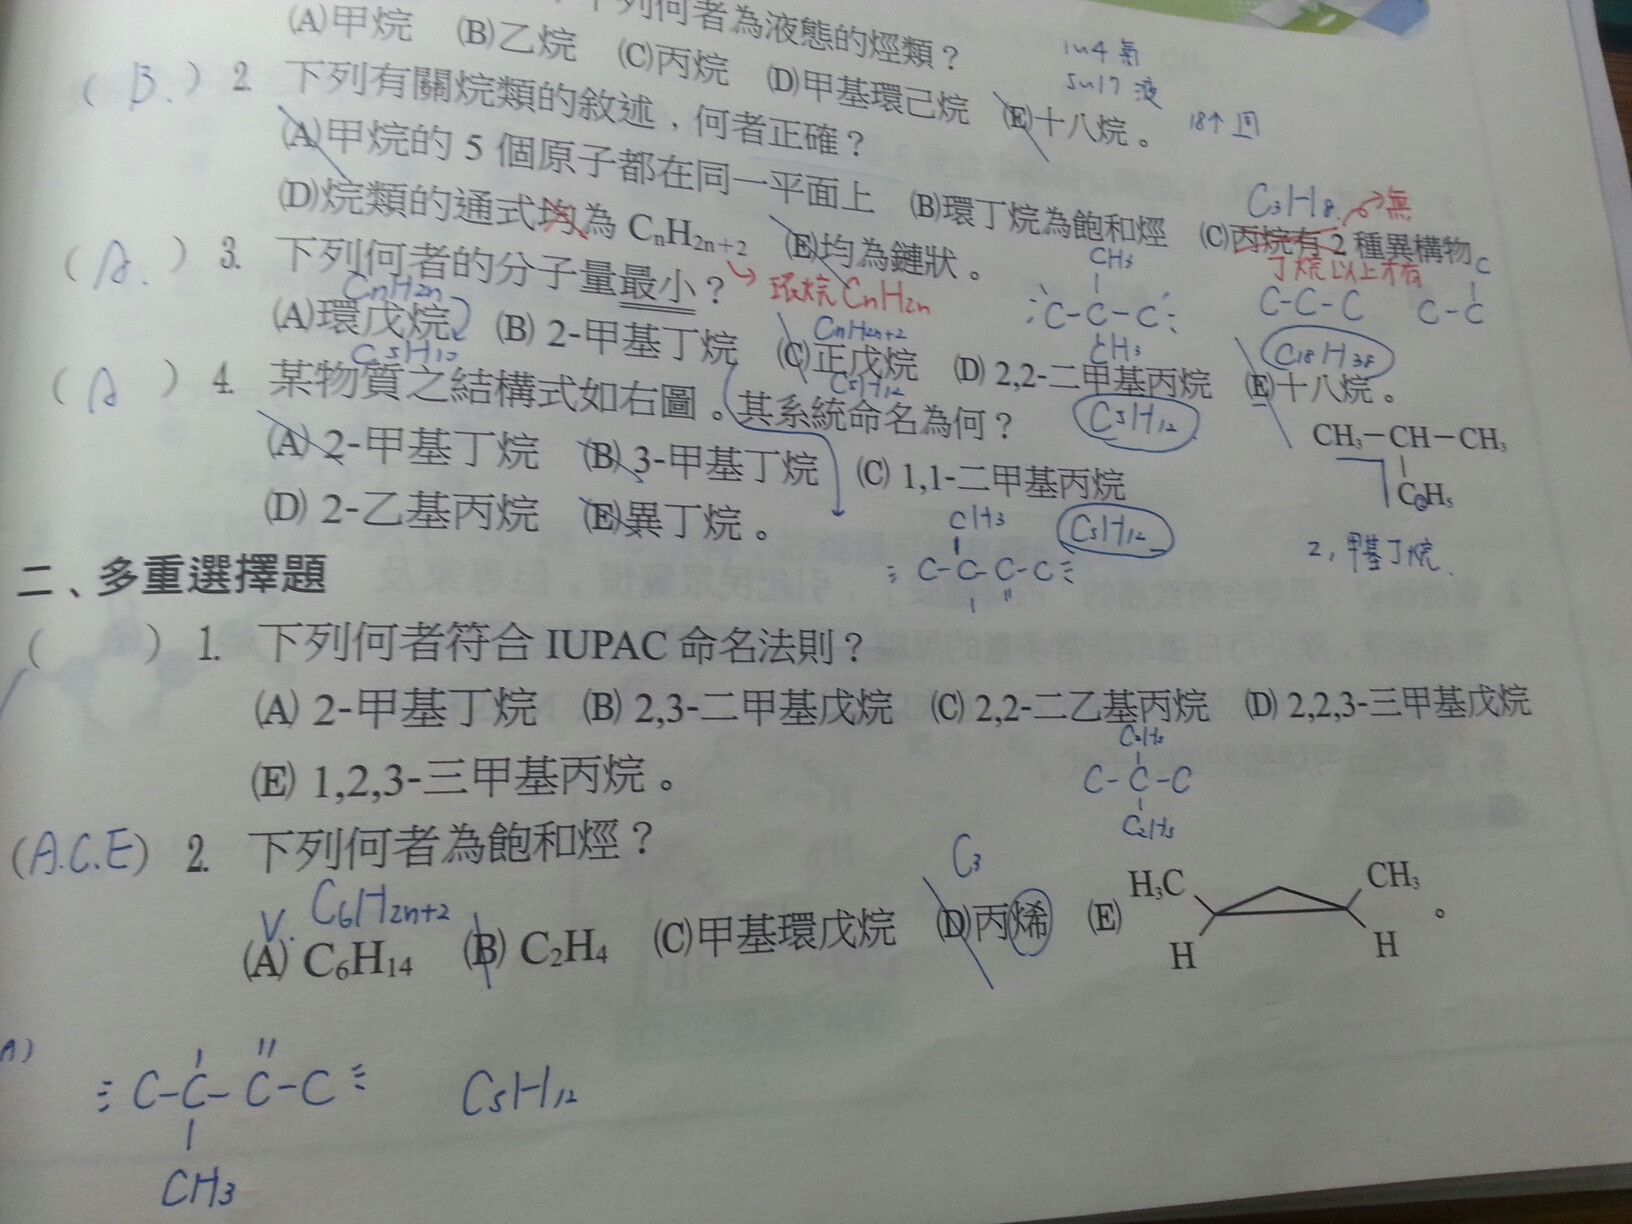 下列何者為液態的烴類？
(A)甲烷 (B)乙烷 (C)丙烷 (D)甲基環己烷 (E)十八烷。
1~4 氣
5~17 液
18個 固
(B.) 2. 下列有關烷類的敘述，何者正確？
(A)甲烷的 5 個原子都在同一平面上 (B)環丁烷為飽和烴 (C)丙烷有 2 種異構物
C3H8 → 無
丁烷以上才有
(D)烷類的通式均為 CnH2n+2 (E)均為鏈狀。
→ 環烷 CnH2n
CH3
C-C-C
CH3
C-C-C
C
C-C
(A.) 3. 下列何者的分子量最小？
CnH2n
CnH2n+2
(A)環戊烷 (B) 2-甲基丁烷 (C)正戊烷 (D) 2,2-二甲基丙烷 (E)十八烷。
C5H10
C5H12
C5H12
C18H38
(A) 4. 某物質之結構式如右圖。其系統命名為何？
(A) 2-甲基丁烷 (B) 3-甲基丁烷 (C) 1,1-二甲基丙烷
(D) 2-乙基丙烷 (E)異丁烷。
CH3-CH-CH3
C2H5
2, 甲基丁烷.
CH3
C5H12
C-C-C-C
二、多重選擇題
( ) 1. 下列何者符合 IUPAC 命名法則？
(A) 2-甲基丁烷 (B) 2,3-二甲基戊烷 (C) 2,2-二乙基丙烷 (D) 2,2,3-三甲基戊烷
(E) 1,2,3-三甲基丙烷。
C2H5
C-C-C
C2H5
(A.C.E) 2. 下列何者為飽和烴？
V. C6H2n+2
C3
(A) C6H14 (B) C2H4 (C)甲基環戊烷 (D)丙烯 (E) H3C CH3 H H。
A)
C-C-C-C C5H12
CH3